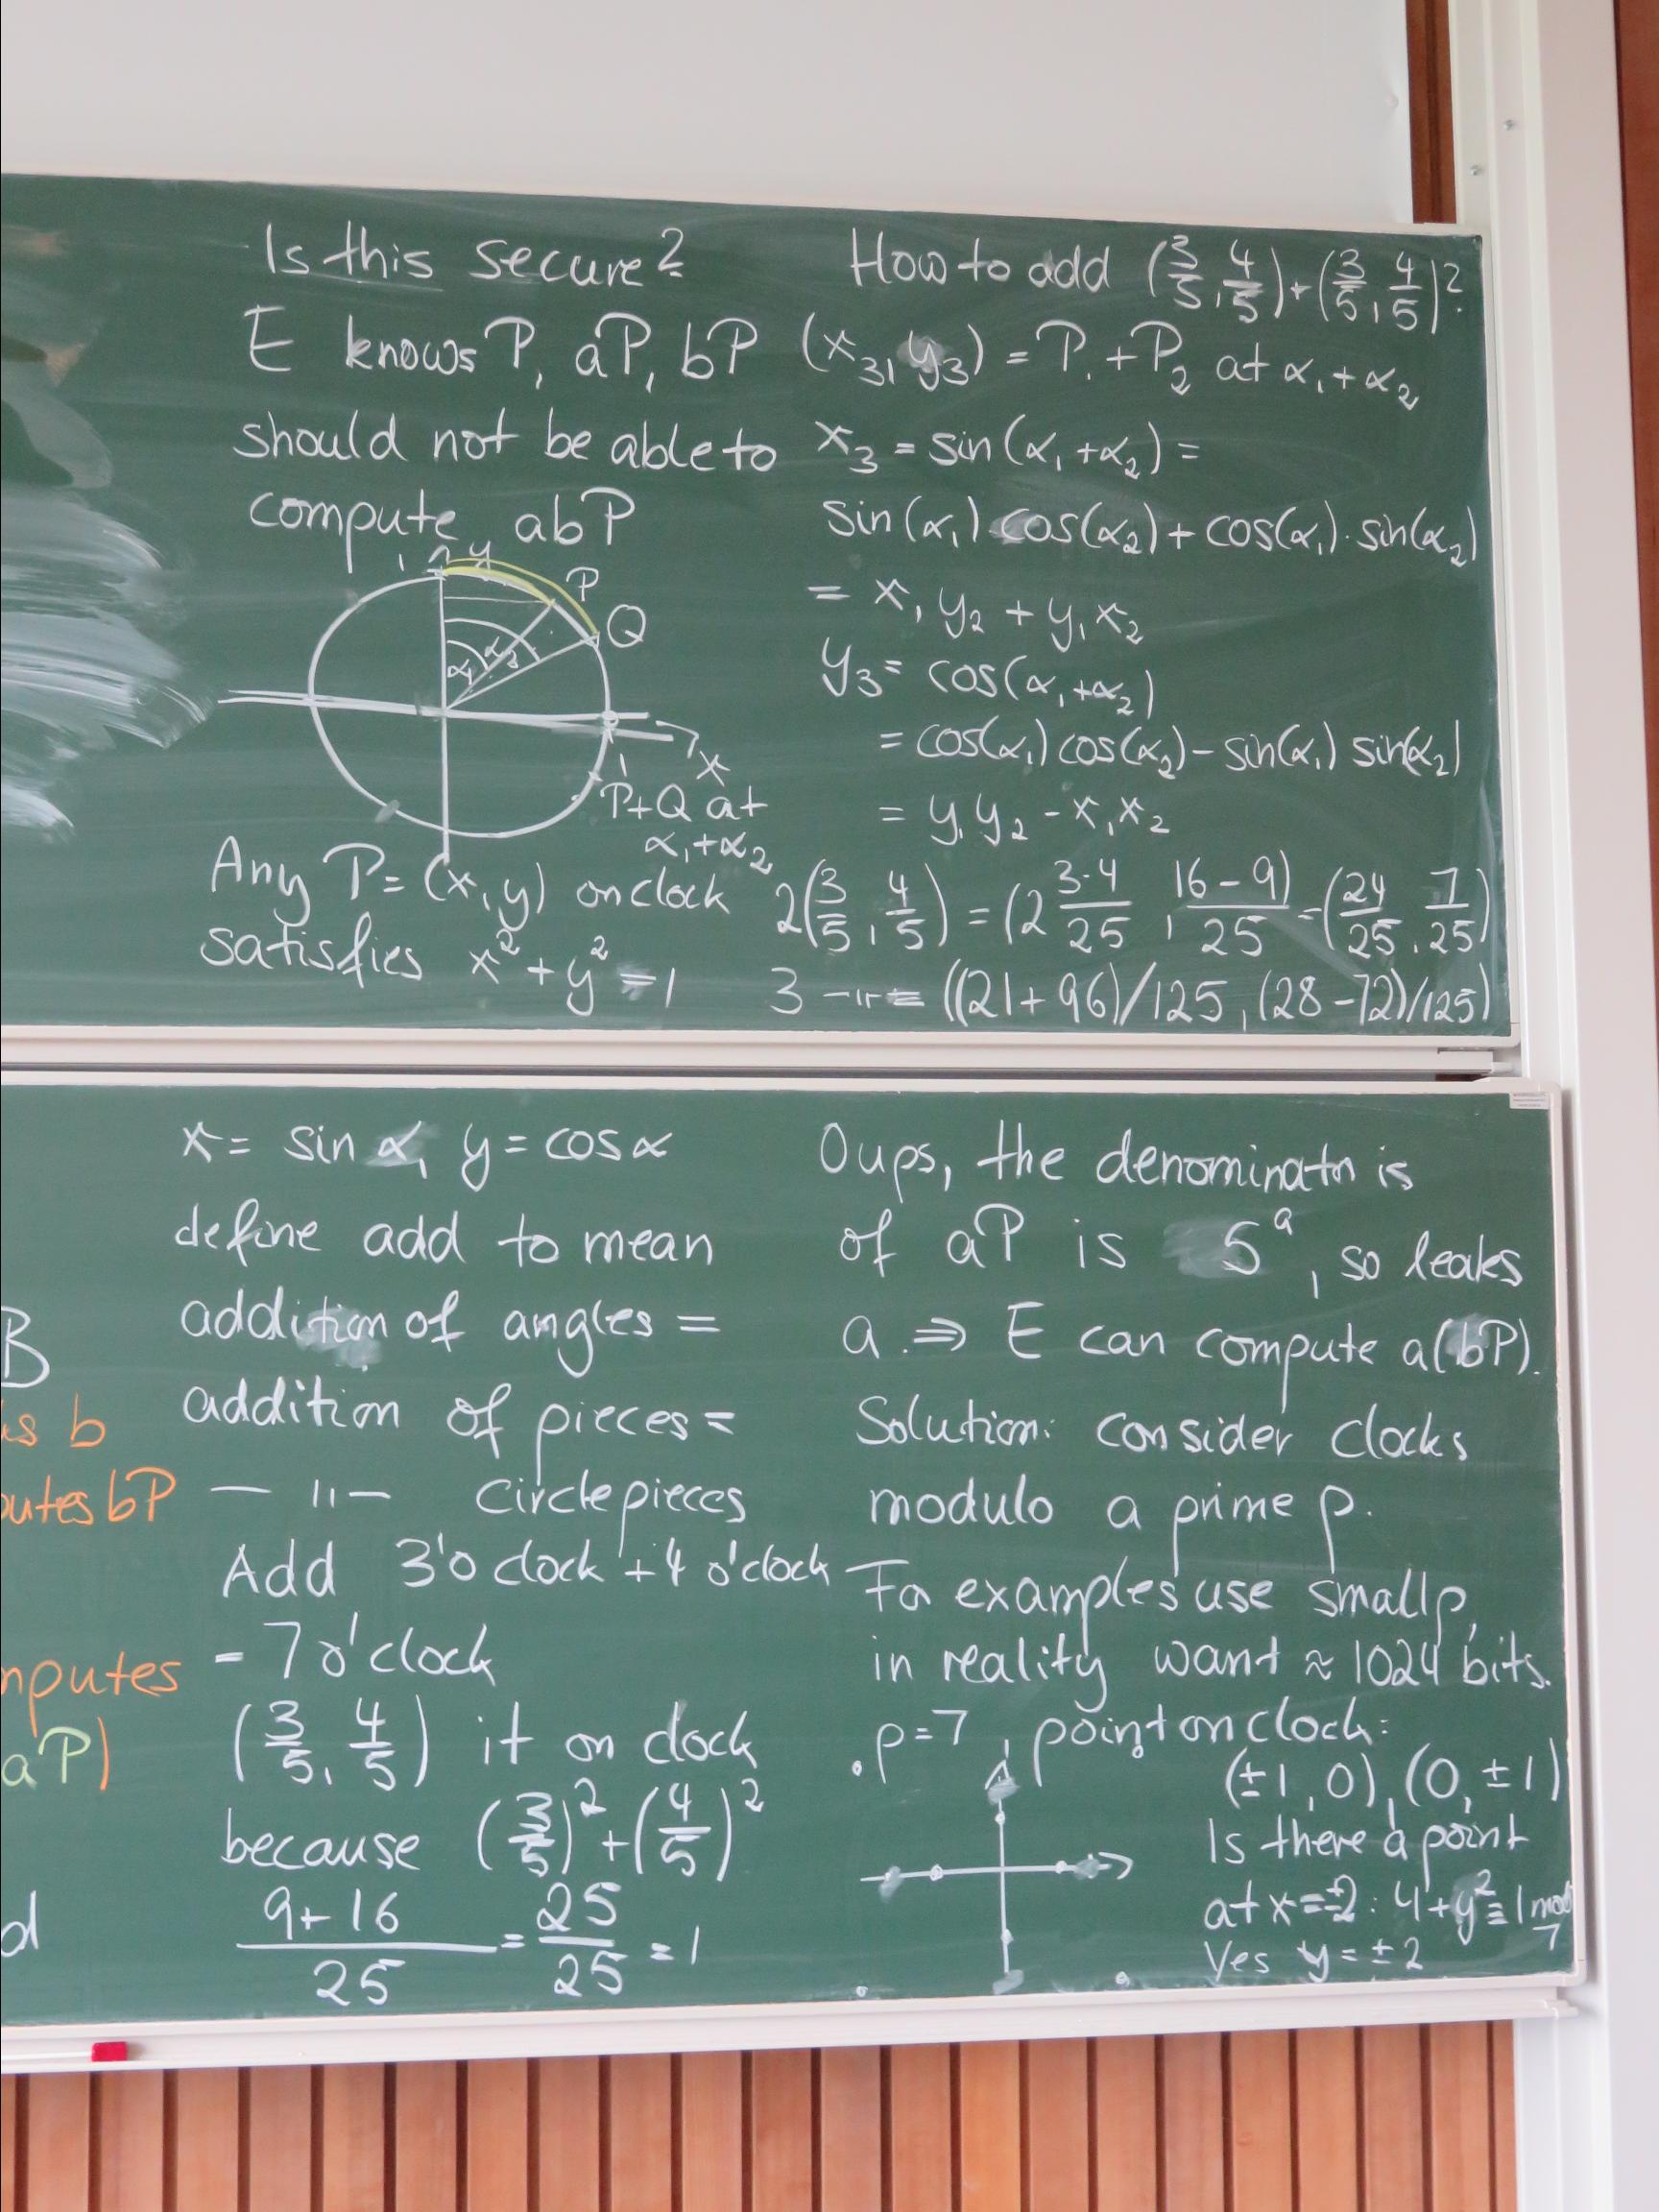 Is this secure?
E knows P, aP, bP
should not be able to
compute abP
1 y
P
Q
α₁ α₂
1 x
P+Q at
α₁+α₂
Any P=(x,y) on clock
satisfies x²+y²=1
How to add (3/5, 4/5)+(3/5, 4/5)?
(x₃, y₃) = P₁+P₂ at α₁+α₂
x₃ = sin(α₁+α₂) =
sin(α₁) cos(α₂) + cos(α₁)·sin(α₂)
= x₁y₂ + y₁x₂
y₃ = cos(α₁+α₂)
= cos(α₁) cos(α₂) - sin(α₁) sin(α₂)
= y₁y₂ - x₁x₂
2(3/5, 4/5) = (2 3·4/25, (16-9)/25) = (24/25, 7/25)
3 -"- = ((21+96)/125, (28-72)/125)
x = sin α, y = cos α
define add to mean
addition of angles =
addition of pieces =
— " — circle pieces
Add 3'o clock + 4 o'clock
= 7 o'clock
(3/5, 4/5) it on clock
because (3/5)² + (4/5)²
(9+16)/25 = 25/25 = 1
Oups, the denominator is
of aP is 5ᵃ, so leaks
a. ⇒ E can compute a(bP).
Solution: consider clocks
modulo a prime p.
For examples use small p,
in reality want ≈ 1024 bits.
p=7, point on clock:
(±1, 0), (0, ±1)
Is there a point
at x=±2: 4+y²≡1 mod 7
Yes y = ±2
B
is b
utes bP
mputes
aP)
d